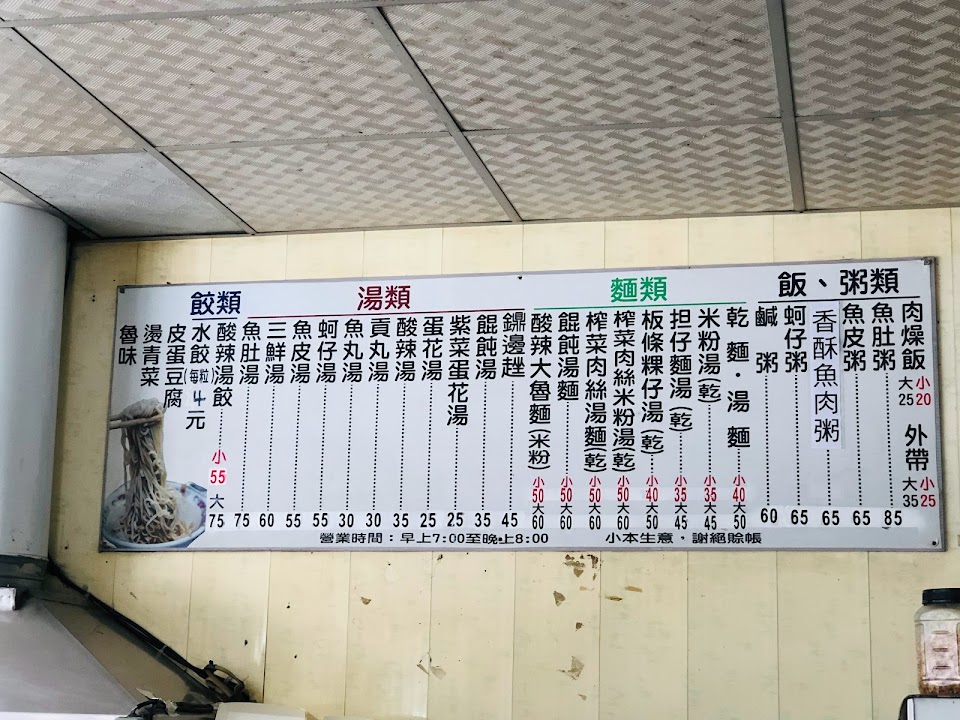 飯、粥類
肉燥飯 小20 大25 外帶 小25 大35
魚肚粥 85
魚皮粥 65
香酥魚肉粥 65
蚵仔粥 65
鹹粥 60
麵類
乾麵·湯麵 小40 大50
米粉湯(乾) 小35 大45
担仔麵湯(乾) 小35 大45
板條粿仔湯(乾) 小40 大50
榨菜肉絲米粉湯(乾) 小50 大60
榨菜肉絲湯麵(乾) 小50 大60
餛飩湯麵 小50 大60
酸辣大魯麵(米粉) 小50 大60
湯類
鼎邊趖 45
餛飩湯 35
紫菜蛋花湯 25
蛋花湯 25
酸辣湯 35
貢丸湯 30
魚丸湯 30
蚵仔湯 55
魚皮湯 55
三鮮湯 60
魚肚湯 75
餃類
酸辣湯餃 小55 大75
水餃(每粒)4元
皮蛋豆腐
燙青菜
魯味
營業時間：早上7:00至晚上8:00
小本生意，謝絕賒帳